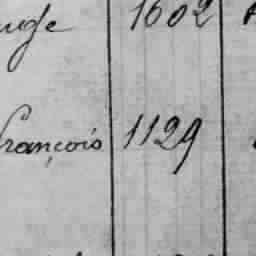 1602
François 1129